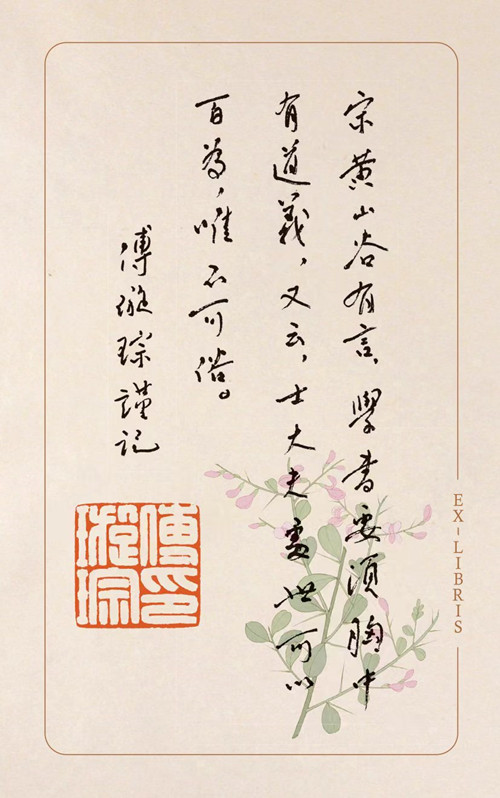 宗黄山谷有言，學書要須胸中
有道義，又云，士大夫處世可以
百為，唯不可俗。
傅璇琮謹記
傅印
璇琮
EX-LIBRIS